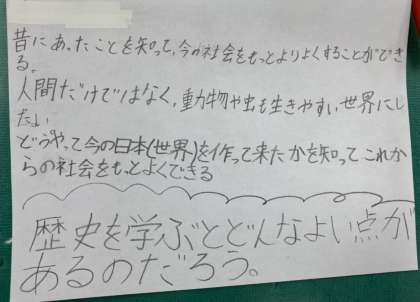 昔にあったことを知って、今の社会をもっとよりよくすることができ
る。
人間だけではなく、動物や虫も生きやすい世界にし
たい
どうやって今の日本(世界)を作って来たかを知ってこれか
らの社会をもっとよくできる
歴史を学ぶとどんなよい点が
あるのだろう。